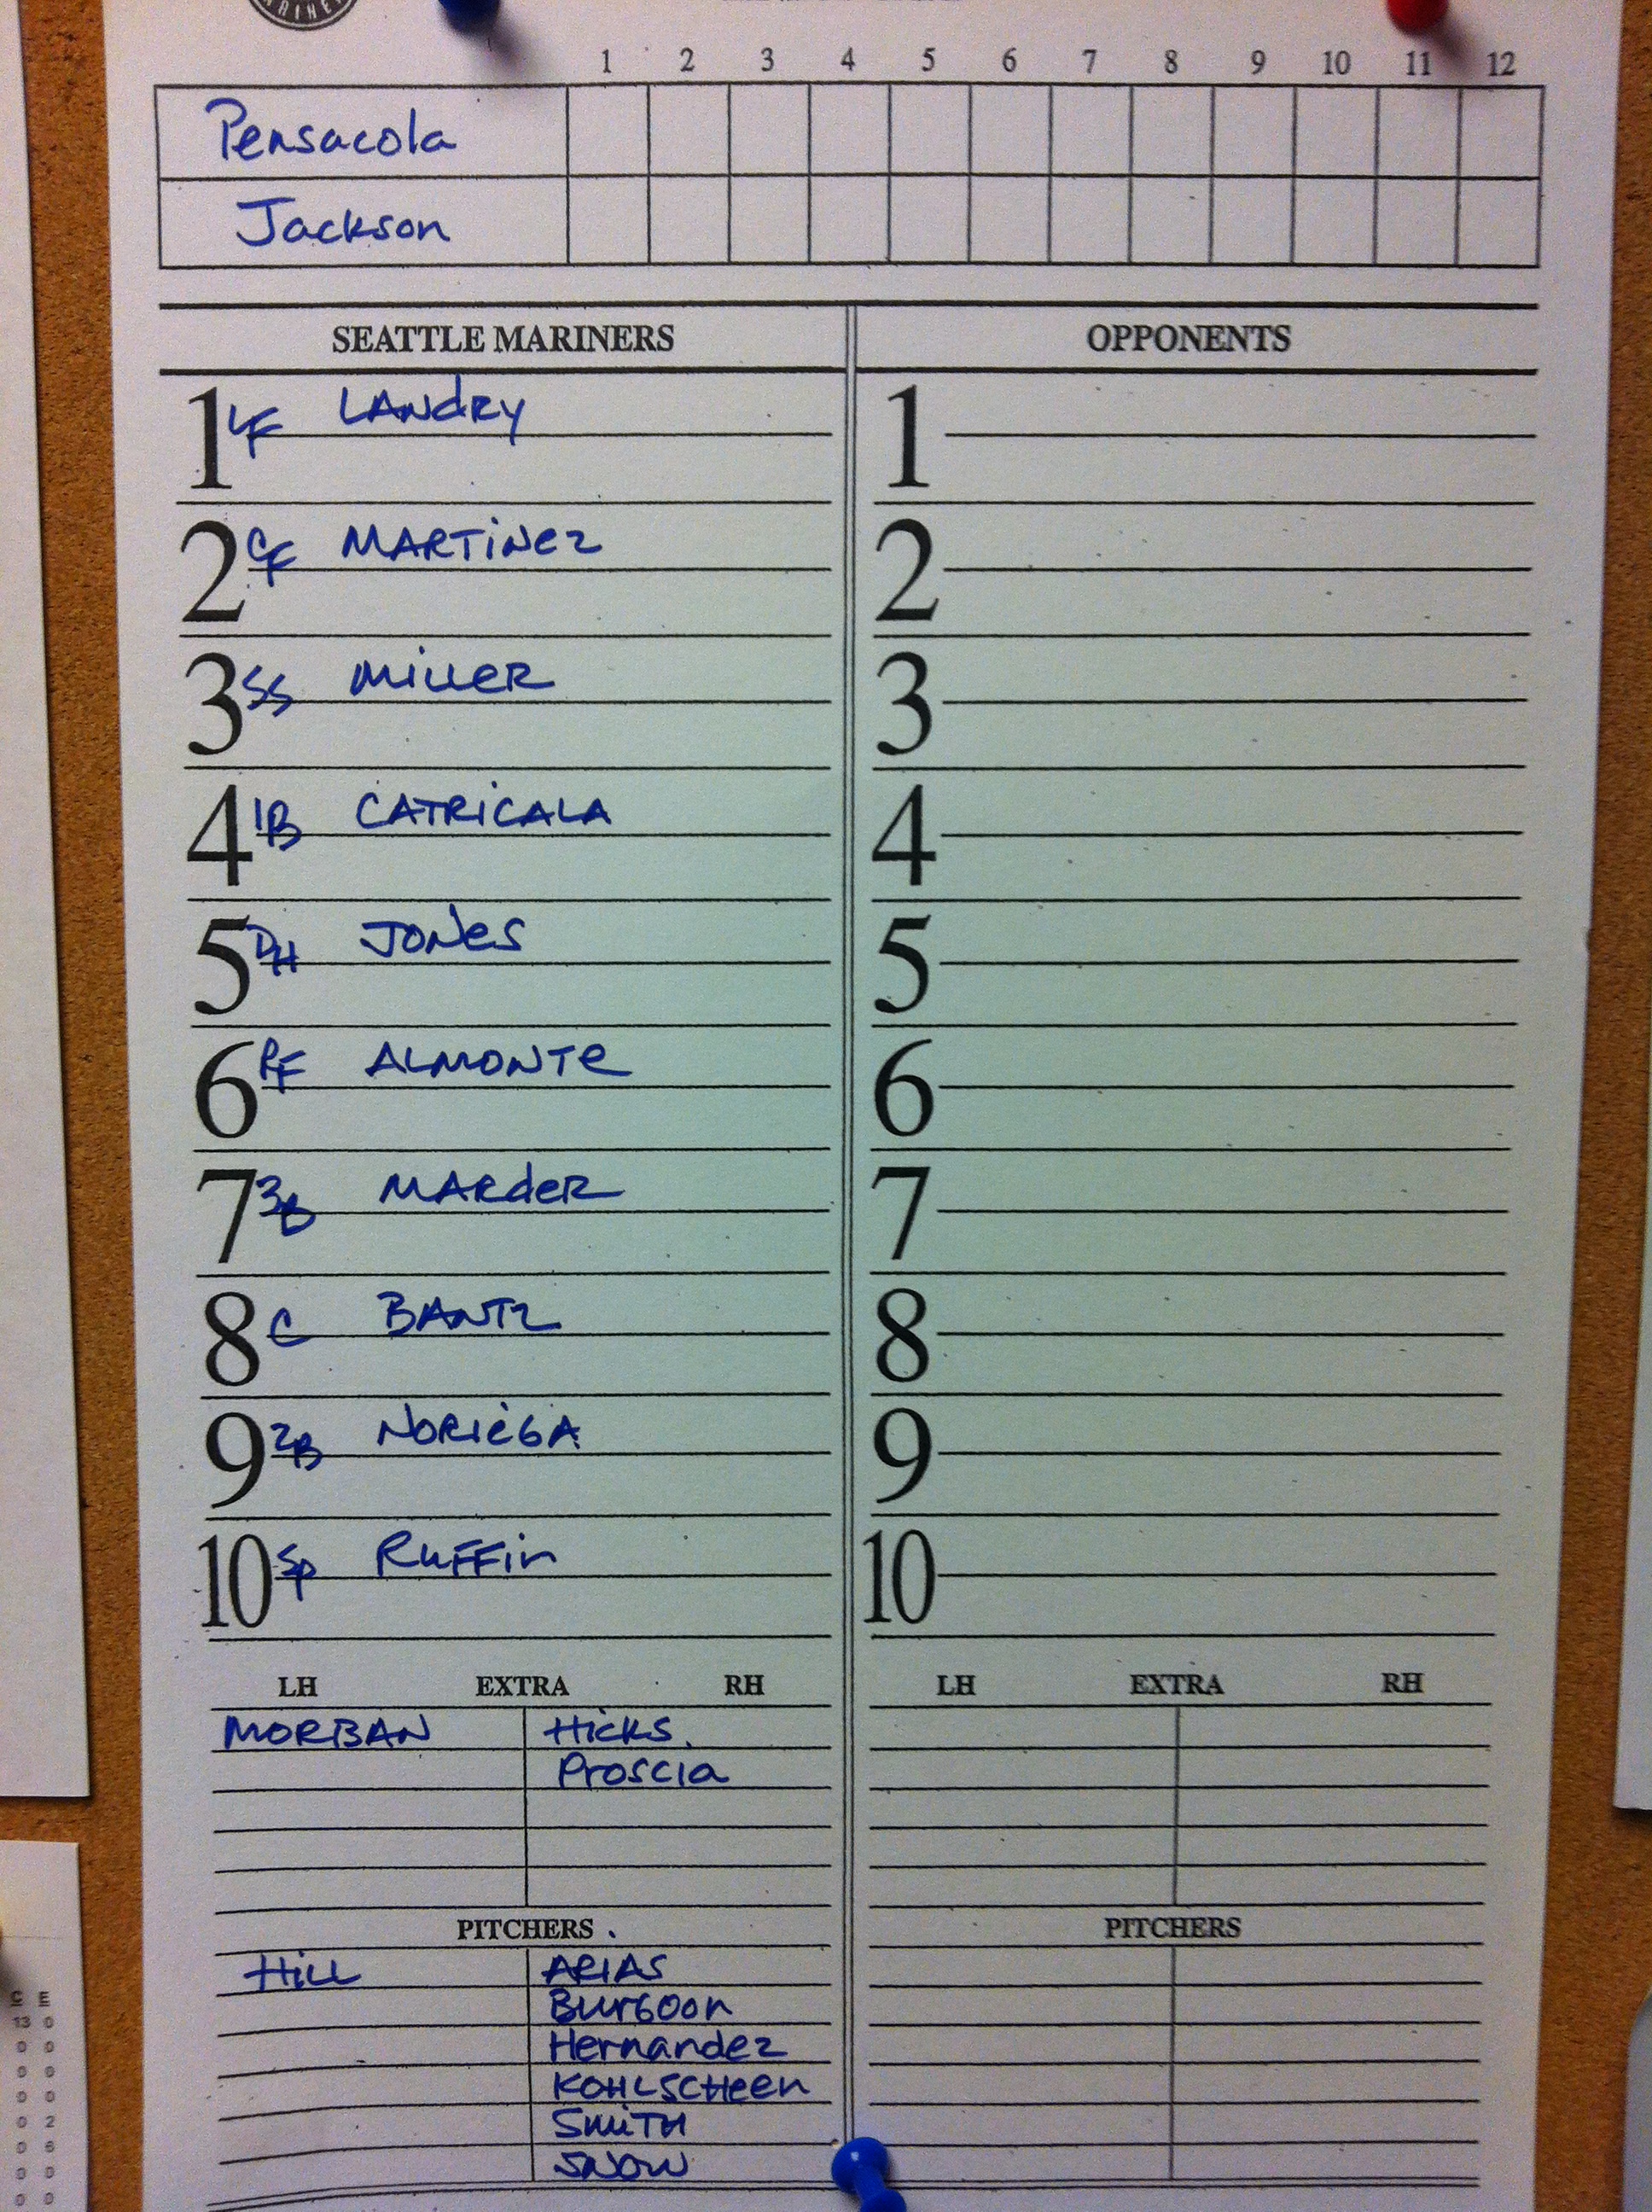 1 2 3 4 5 6 7 8 9 10 11 12
Pensacola
Jackson
SEATTLE MARINERS OPPONENTS
1 LF LANdRY 1
2 CF MARTiNez 2
3 SS MiLLeR 3
4 1B CATRiCALA 4
5 DH JONes 5
6 RF ALMONTe 6
7 3B MARdeR 7
8 C BANTz 8
9 2B NORieGA 9
10 SP RuFFin 10
LH EXTRA RH LH EXTRA RH
MORBAN HicKS
Proscia
PITCHERS PITCHERS
HiLL ARIAS
BurGoon
Hernandez
KOHLSCHeen
SMiTH
SNOW
C E
13 0
0 0
0 0
0 0
0 2
0 6
0 0
0 0